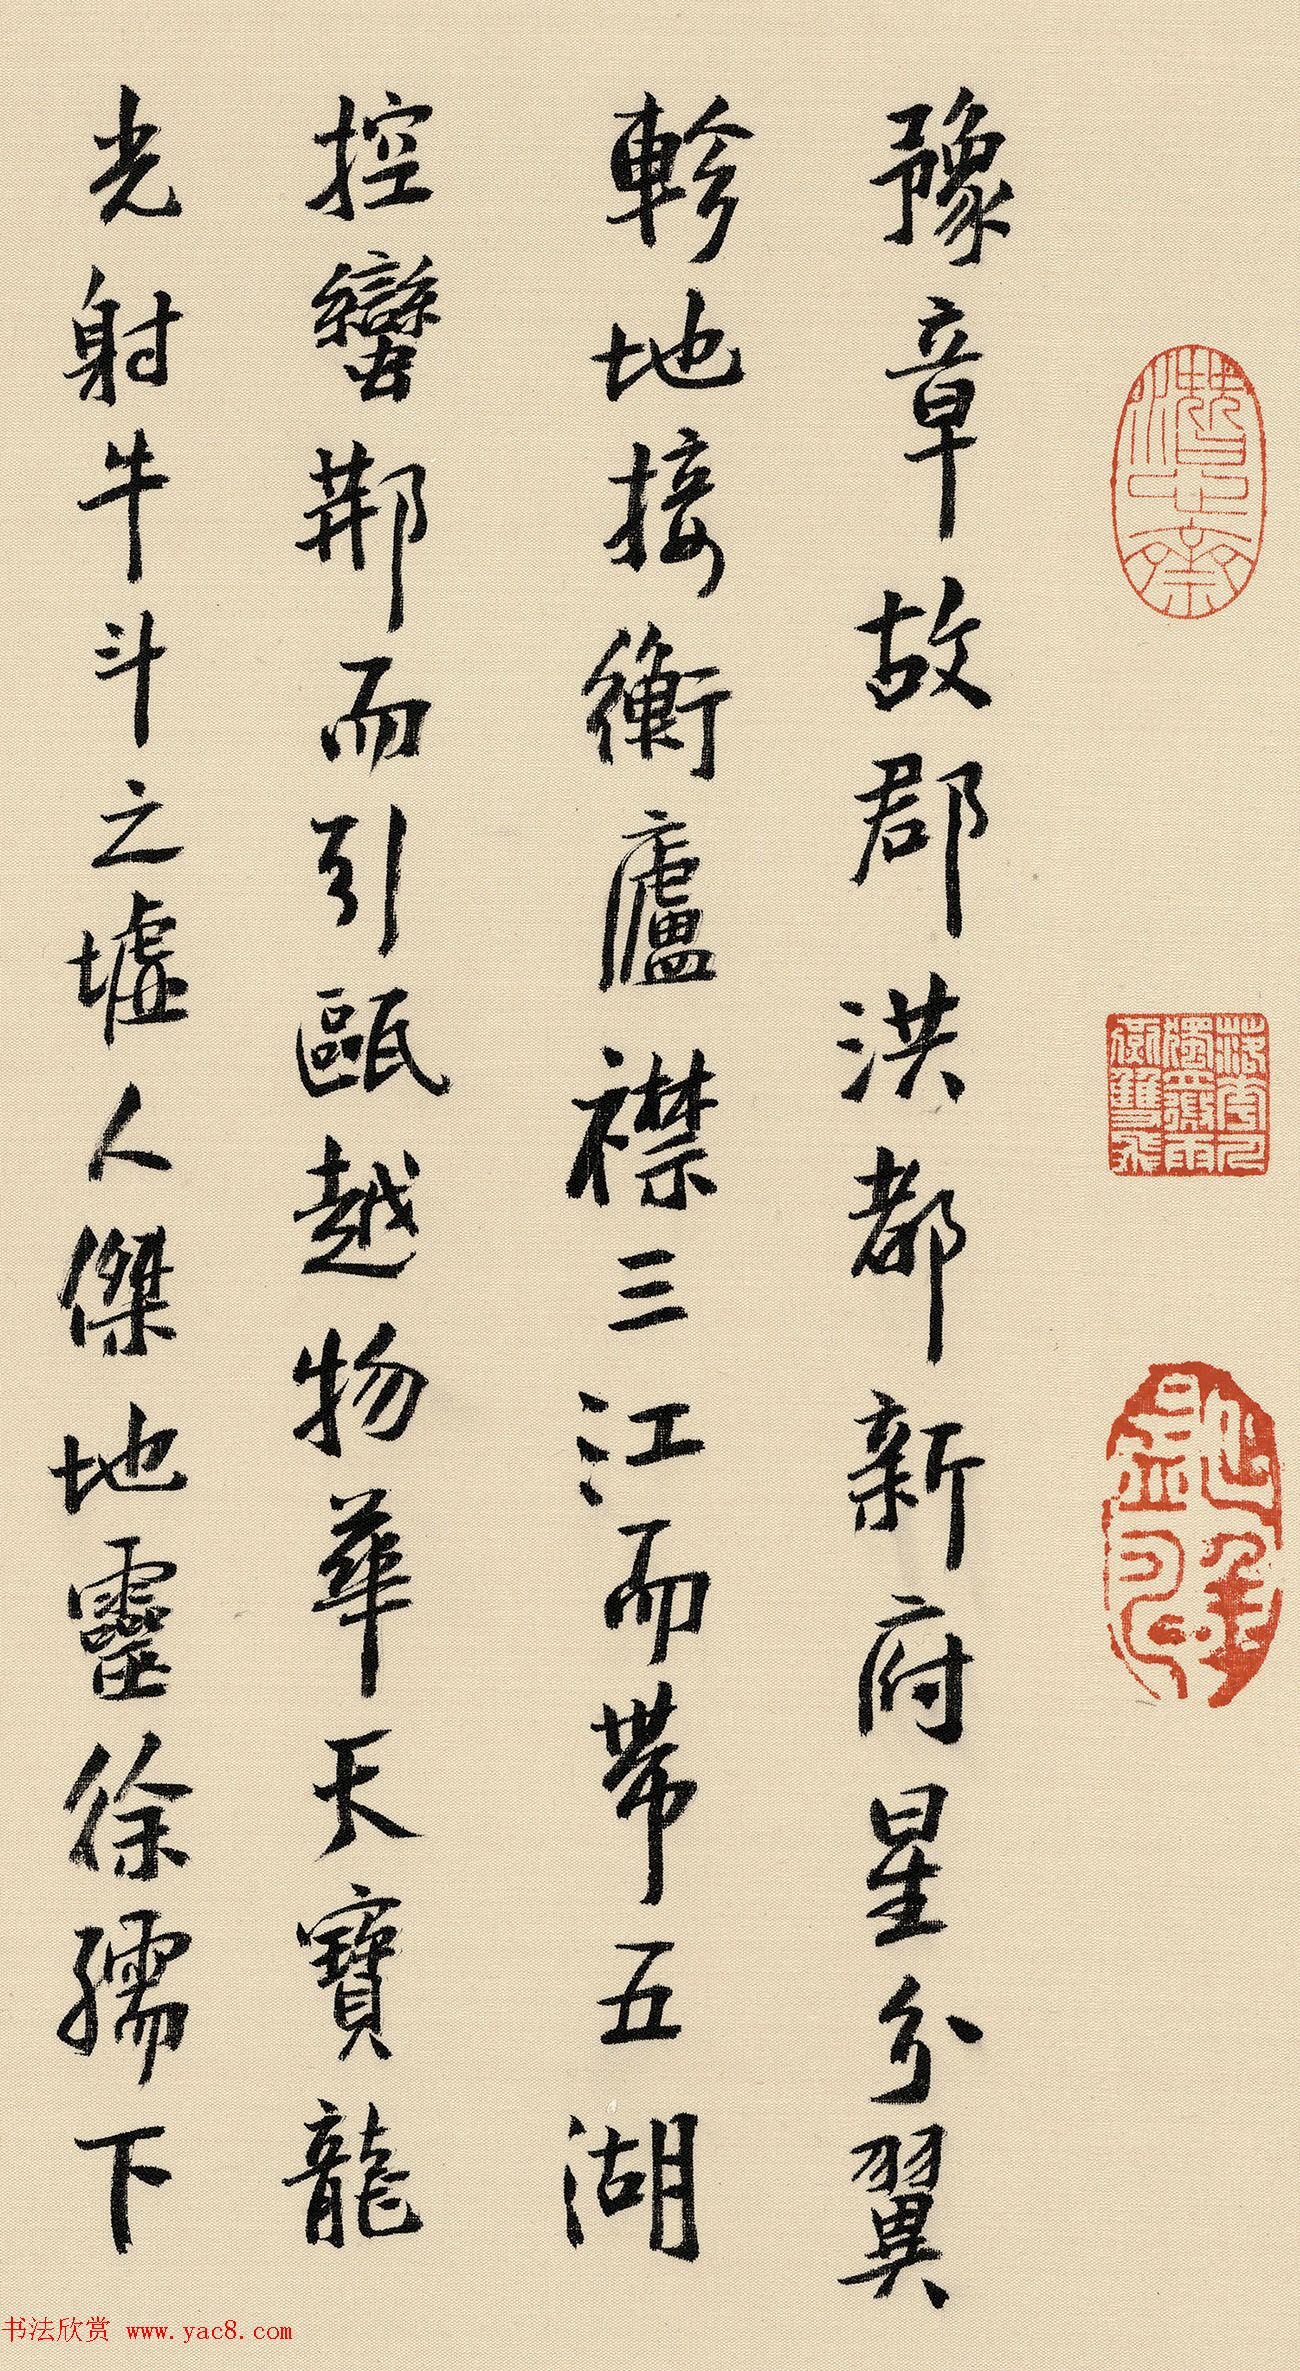 豫章故郡洪都新府星分翼
軫地接衡廬襟三江而帶五湖
控蠻荆而引甌越物華天寶龍
光射牛斗之墟人傑地靈徐孺下
落花人獨立微雨燕雙飛
书法欣赏 www.yac8.com